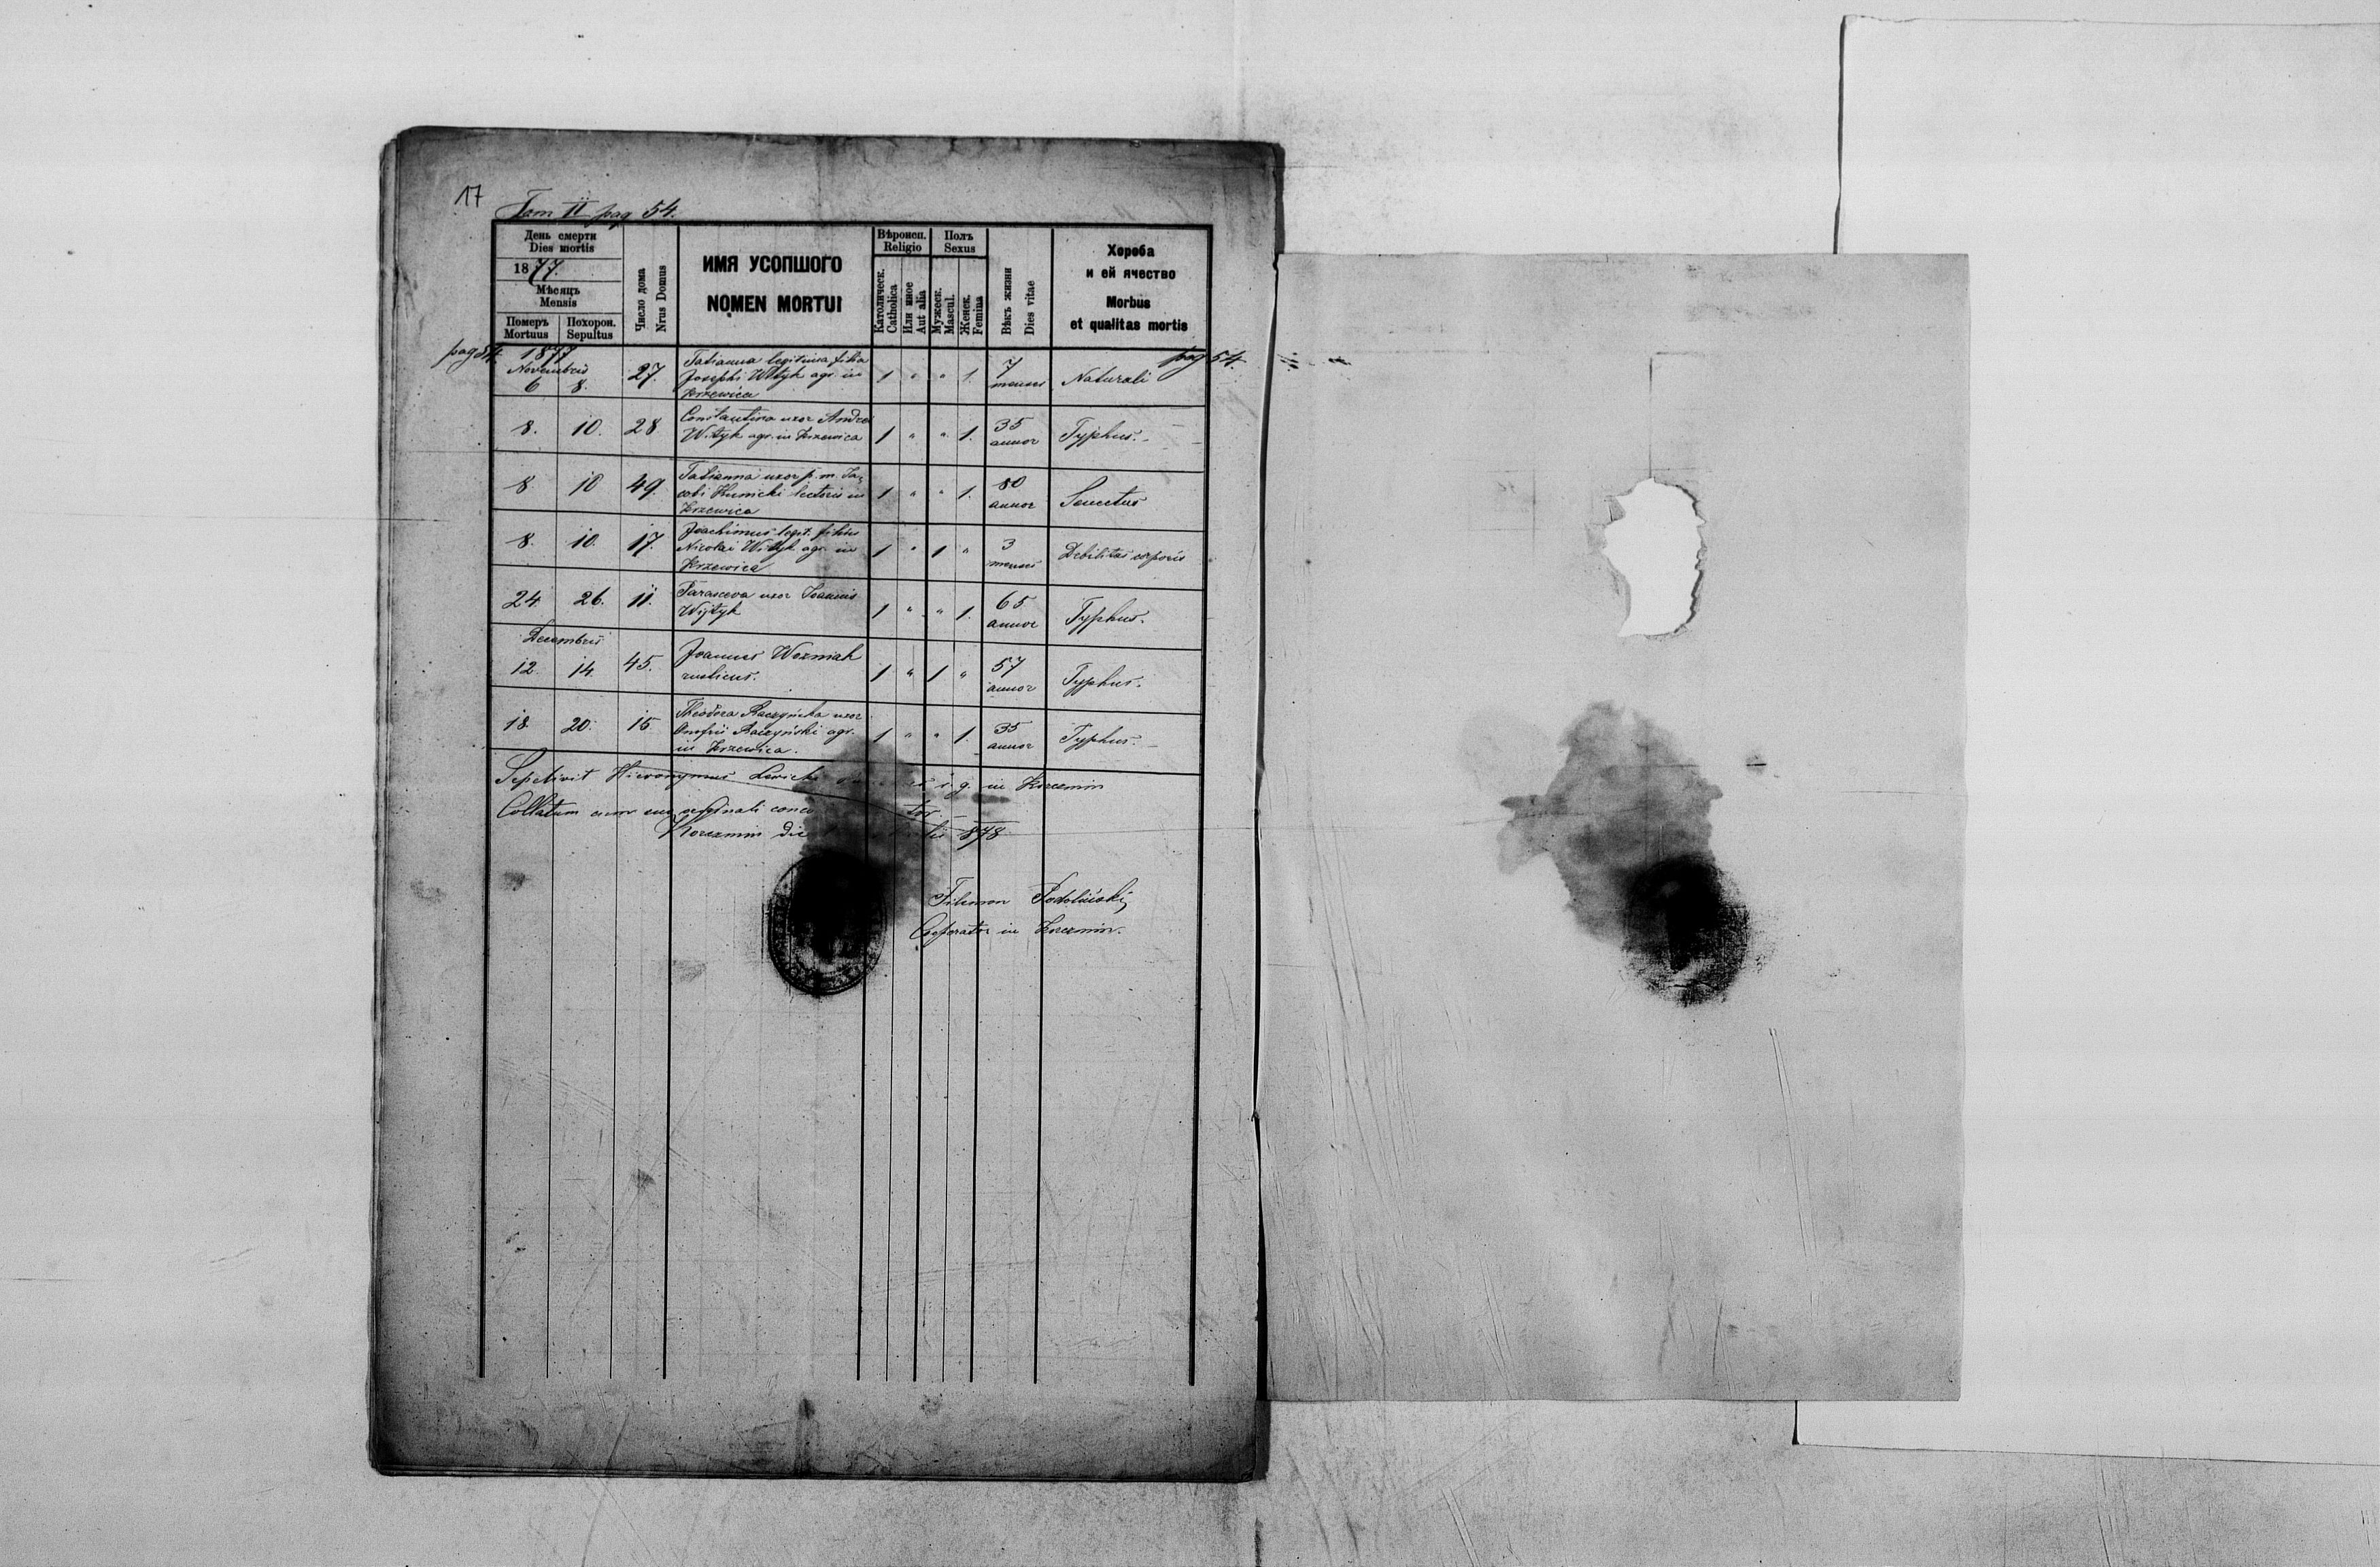 17
Tom II pag 54.
День смерти
Dies mortis
1877.
Мѣсяцъ
Mensis
Померъ
Mortuus
Похорон.
Sepultus
Число дома
Nrus Domus
ИМЯ УСОПШОГО
NOMEN MORTUI
Вѣроисп.
Religio
Католическ.
Catholica
Или иное
Aut alia
Полъ
Sexus
Мужеск.
Mascul.
Женск.
Femina
Вѣкъ жизни
Dies vitae
Хороба
и ей ячество
Morbus
et qualitas mortis
pag 54.
1877
pag 54.
Novembris
6 8. 27. Tatianna legitima filia
Josephi Wityk agr. in
Krzewica 1 " " 1. 7
menses Naturali
8. 10. 28 Constantina uxor Andrei
Wityk agr. in Krzewica 1 " " 1. 35
annor Typhus.
8. 10 49. Tatianna uxor p. m. Ja-
cobi Kunicki lectoris in
Krzewica 1 " " 1. 80
annor Senectus
8. 10. 17. Joachimus legit. filius
Nicolai Wityk agr. in
Krzewica 1 " 1 " 3
menses Debilitas corporis
24. 26. 11. Parasceva uxor Joannis
Wityk 1 " " 1. 65
annor Typhus.
Decembris
12. 14. 45. Joannes Wozniak
rusticus. 1 " 1 " 57
annor Typhus.
18. 20. 15 Theodora Raczyńska uxor
Onufrii Raczyński agr.
in Krzewica. 1 " " 1. 35
annor Typhus.
Sepelivit Hieronymus Lewicki r. g. in Korczmin
Collatum cum suo originali
Korczmin die 878
Filemon Podoliński
Cooperator in Korczmin.